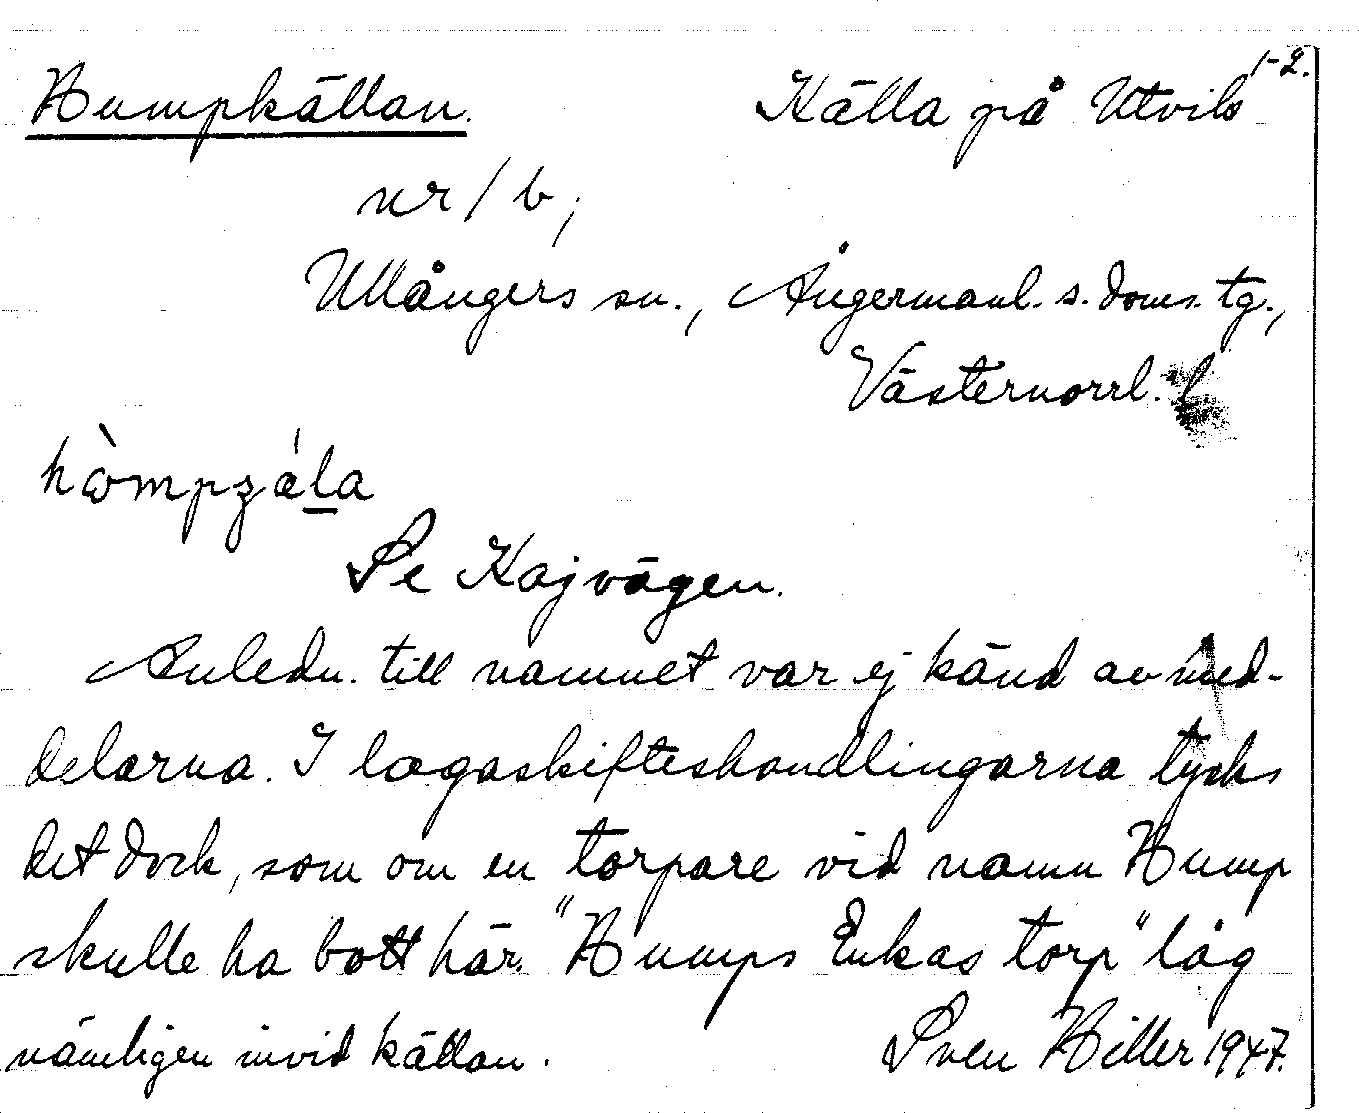 Humpkällan. Källa på Utvik 1-2.
nr / b,
Ullångers sn., Ångermanl. s. doms. tg.,
Västernorrl. l
Se Kajvägen.
Anledn. till namnet var ej känd av med-
delarna. I lagaskifteshandlingarna tycks
det dock, som om en torpare vid namn Hump
skulle ha bott här. "Humps Enkas torp" låg
nämligen invid källan. Sven Hiller 1947.